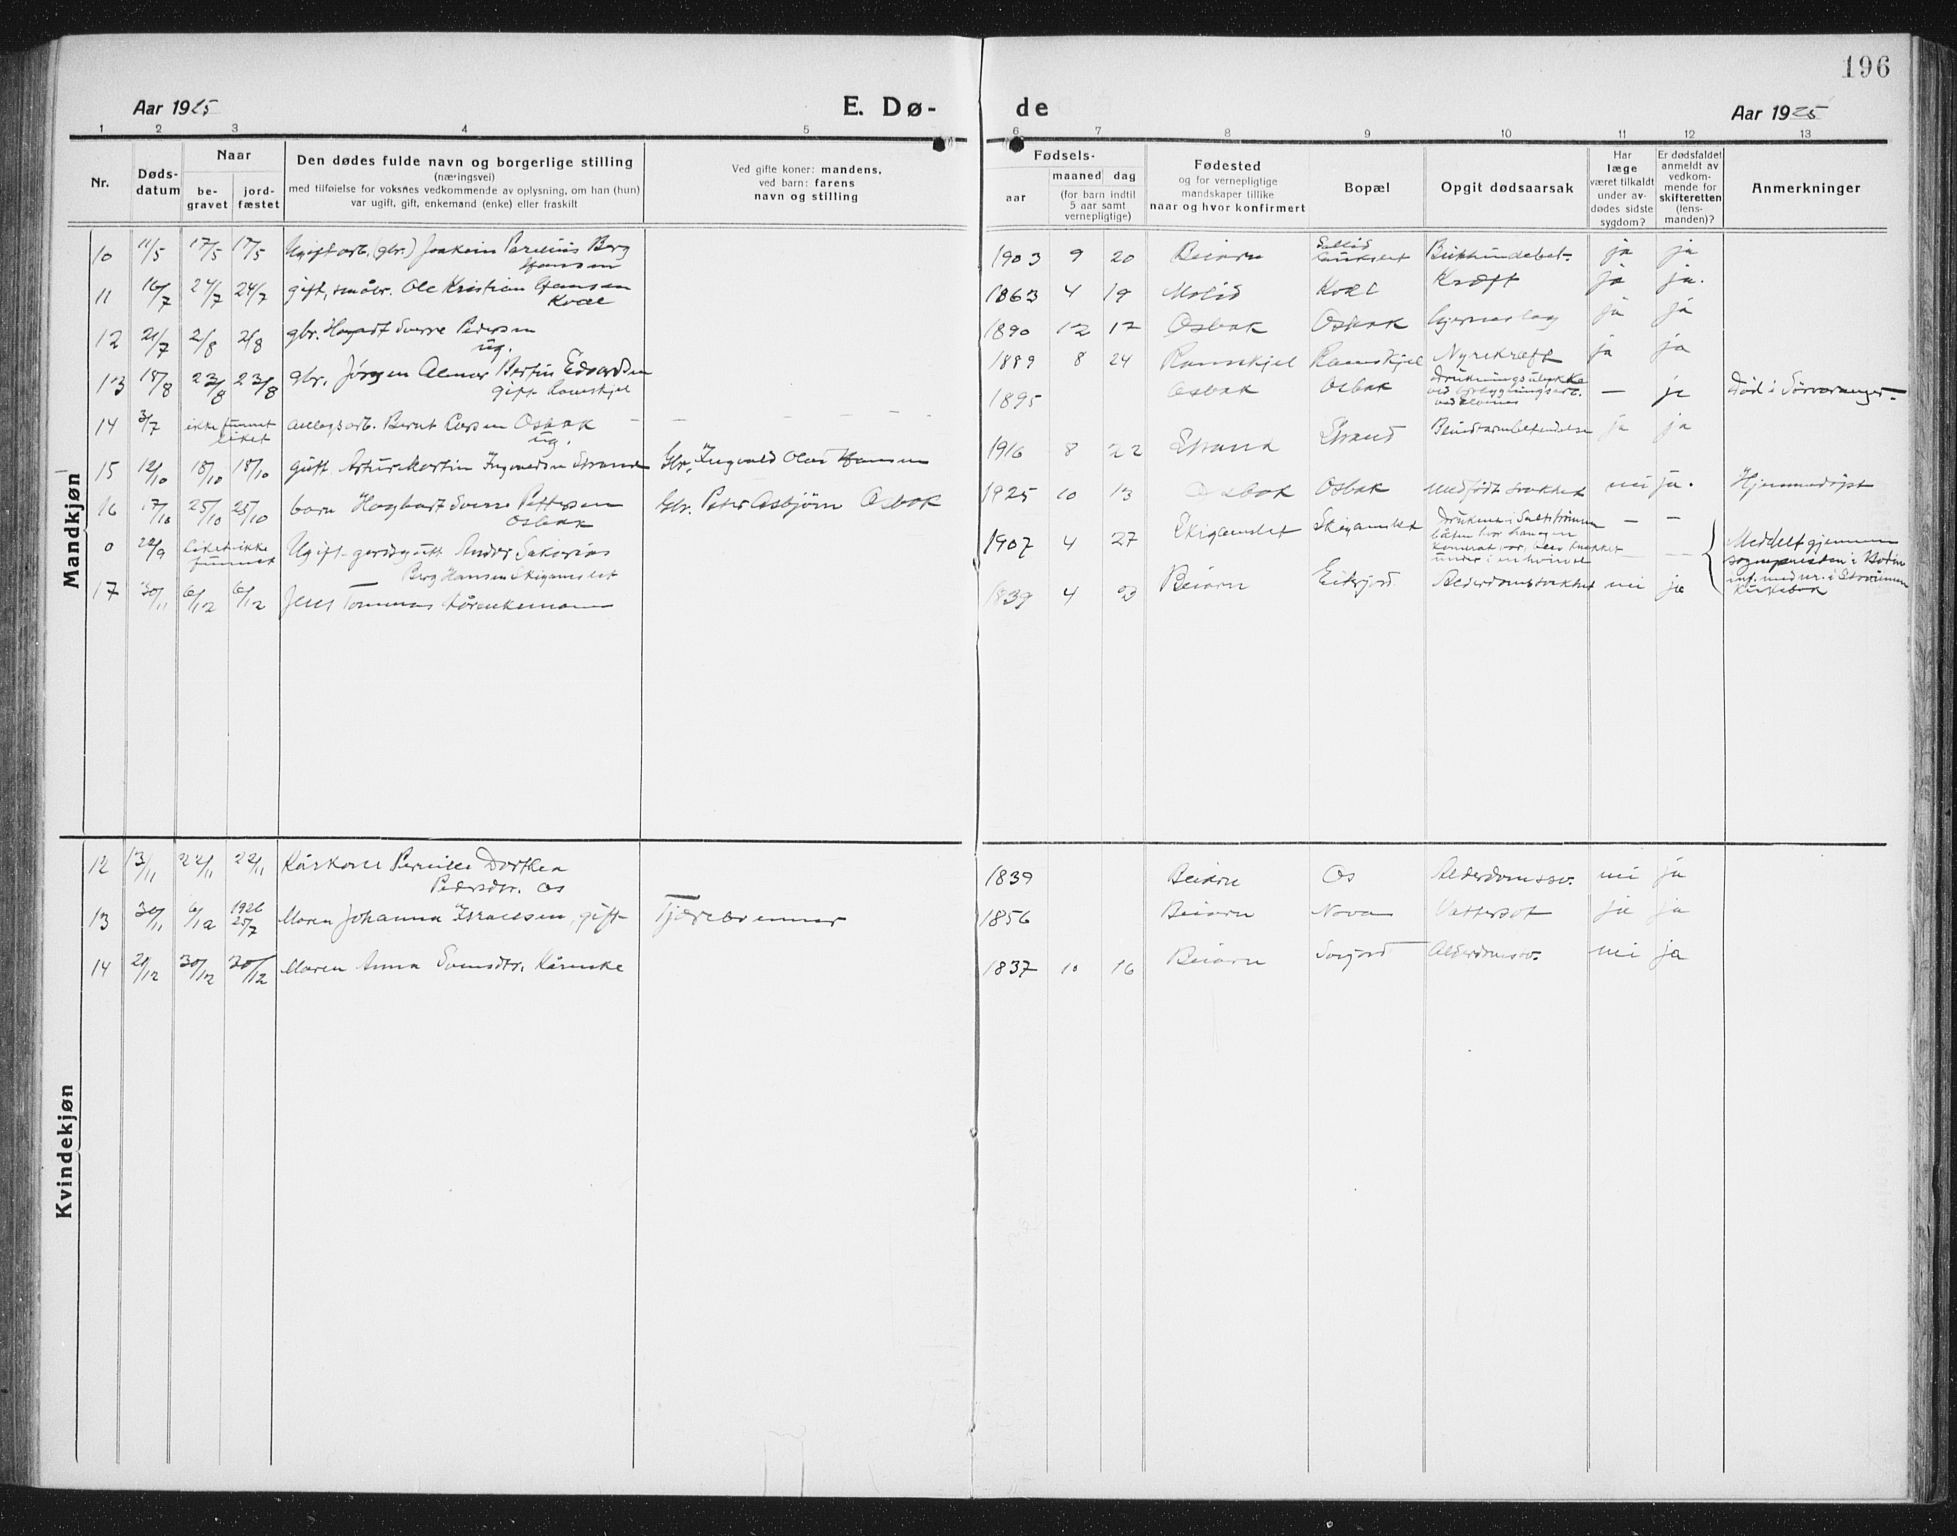 196
Aar 1925
E. Dø-
de
Aar 1925
1 2 3 4 5 6 7 8 9 10 11 12 13
Nr.
Døds-
datum
Naar
be-
gravet
jord-
fæstet
Den dødes fulde navn og borgerlige stilling
(næringsvei)
med tilføielse for voksnes vedkommende av oplysning, om han (hun)
var ugift, gift, enkemand (enke) eller fraskilt
Ved gifte koner: mandens,
ved barn: farens
navn og stilling
Fødsels-
aar
maaned dag
(for barn indtil
5 aar samt
vernepligtige)
Fødested
og for vernepligtige
mandskaper tillike
naar og hvor konfirmert
Bopæl
Opgit dødsaarsak
Har
læge
været tilkaldt
under av-
dødes sidste
sygdom?
Er dødsfaldet
anmeldt av
vedkom-
mende for
skifteretten
(lens-
manden)?
Anmerkninger
Mandkjøn
10 11/5 17/5 17/5 Ugift arb. (gbr.) Joakim Parelius Berg
Hansen
1903 9 20 Beiarn ja ja
11 16/7 24/7 24/7 gift, småbr. Ole Kristian Hansen
Kvæl
1863 4 19 Kvæl Kræft ja ja.
12 21/7 2/8 2/8 gbr. Sverre Pedersen
ug.
1890 12 12 Osbak Osbak ja ja
13 18/8 23/8 23/8 gbr. Jørgen Almar Bertin Edvardsen
gift Ramskjel
1889 8 24 Ramskjel Ramskjel Nyrekræft ja ja
14 3/7 ikke funnet
liket
anlegsarb. Bernt Larsen Osbak
ug.
1895 Osbak Osbak Drukningsulykke
— ja Død i Sørvaranger
15 12/10 18/10 18/10 gutt. Artur Martin Ingvaldsen Strand Gbr. Ingvald Olai Hansen
1916 8 22 Strand Strand Blindtarmbetendelse ja ja
16 17/10 25/10 25/10 barn Hagbart Sverre Pettersen
Osbak
Gbr. Peter Asbjørn Osbak
1925 10 13 Osbak Osbak Medfødt svakhet nei ja. Hjemmedøpt
0 22/9 liket ikke
funnet
Ugift gårdsgutt Ander Sakarias
Berg Hansen Skigamslet
1907 4 27 Skigamslet Skigamslet Druknet i Saltstrømmen
— —
Meddelt gjennem
sognepresten i Bodin
17 30/11 6/12 6/12 Jens Tommas kårenkemann
1839 4 23 Beiarn Eiterjord Alderdomssvakhet nei ja
Kvindekjøn
12 13/11 22/11 22/11 Kårkone Pernille Dorthea
Pedersdtr. Os
1839 Beiarn Os Alderdomssv. nei ja
13 30/11 6/12 1926
25/7 Maren Johanna Israelsen, gift Tjærebrenner
1856 Beiarn Nova Vattersot ja ja
14 20/12 30/12 30/12 Maren Anna Svensdtr. Kårenke
1837 10 16 Beiarn Alderdomssv. nei ja